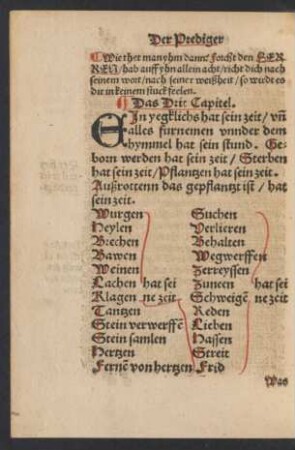 Der Prediger
¶ Wie thet man yhm dann? Forcht den HER
REN/ hab auff yhn allein acht/ richt dich nach
seinem wort/ nach seiner weißheit/ so wirdt es
dir in keinem stuck feelen.
¶ Das Drit Capitel.
EIn yegklichs hat sein zeit/ vñ
alles furnemen vnnder dem
hymmel hat sein stund. Ge-
born werden hat sein zeit/ Sterben
hat sein zeit/ Pflantzen hat sein zeit.
Außrottenn das gepflantzt ist/ hat
sein zeit.
Wurgen Suchen
Heylen Verlieren
Brechen Behalten
Bawen Wegwerffen
Weinen Zerreyssen
Lachen hat sei Zuneen hat sei
Klagen ne zeit Schweigẽ ne zeit
Tantzen Reden
Stein verwerffẽ Lieben
Stein samlen Hassen
Hertzen Streit
Fernẽ von hertzen Frid
Was